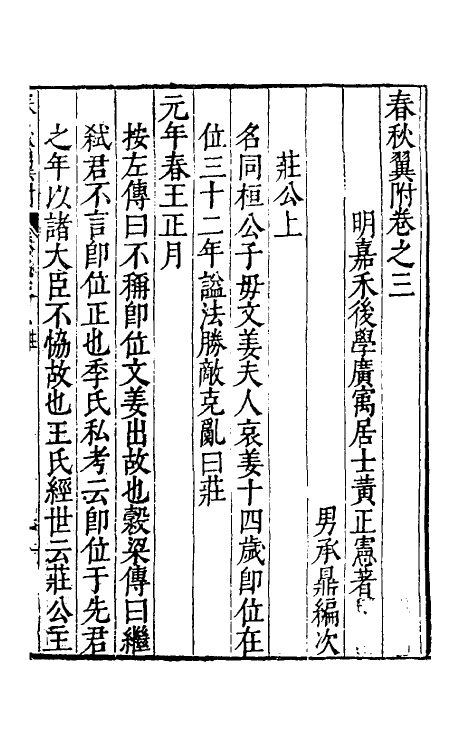 春秋翼附卷之三
明嘉禾後學廣寓居士黃正憲著
男承鼎編次
莊公上
名同桓公子毋文姜夫人哀姜十四歲卽位在
位三十二年謚法勝敵克亂曰莊
元年春王正月
按左傳曰不稱卽位文姜出故也穀梁傳曰繼
弒君不言卽位正也季氏私考云卽位于先君
之年以諸大臣不恊故也王氏經世云莊公主